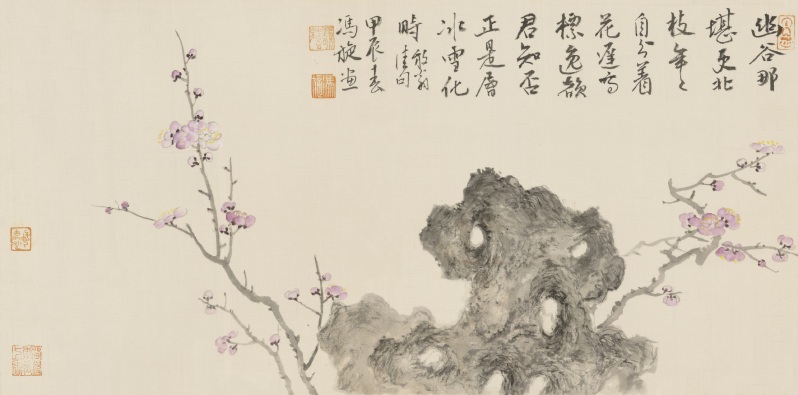 幽谷那
堪更北
枝年〻
自分着
花遲高
標逸韻
君知否
正是層
冰雪化
時放翁
佳句
甲辰春
馮旋画